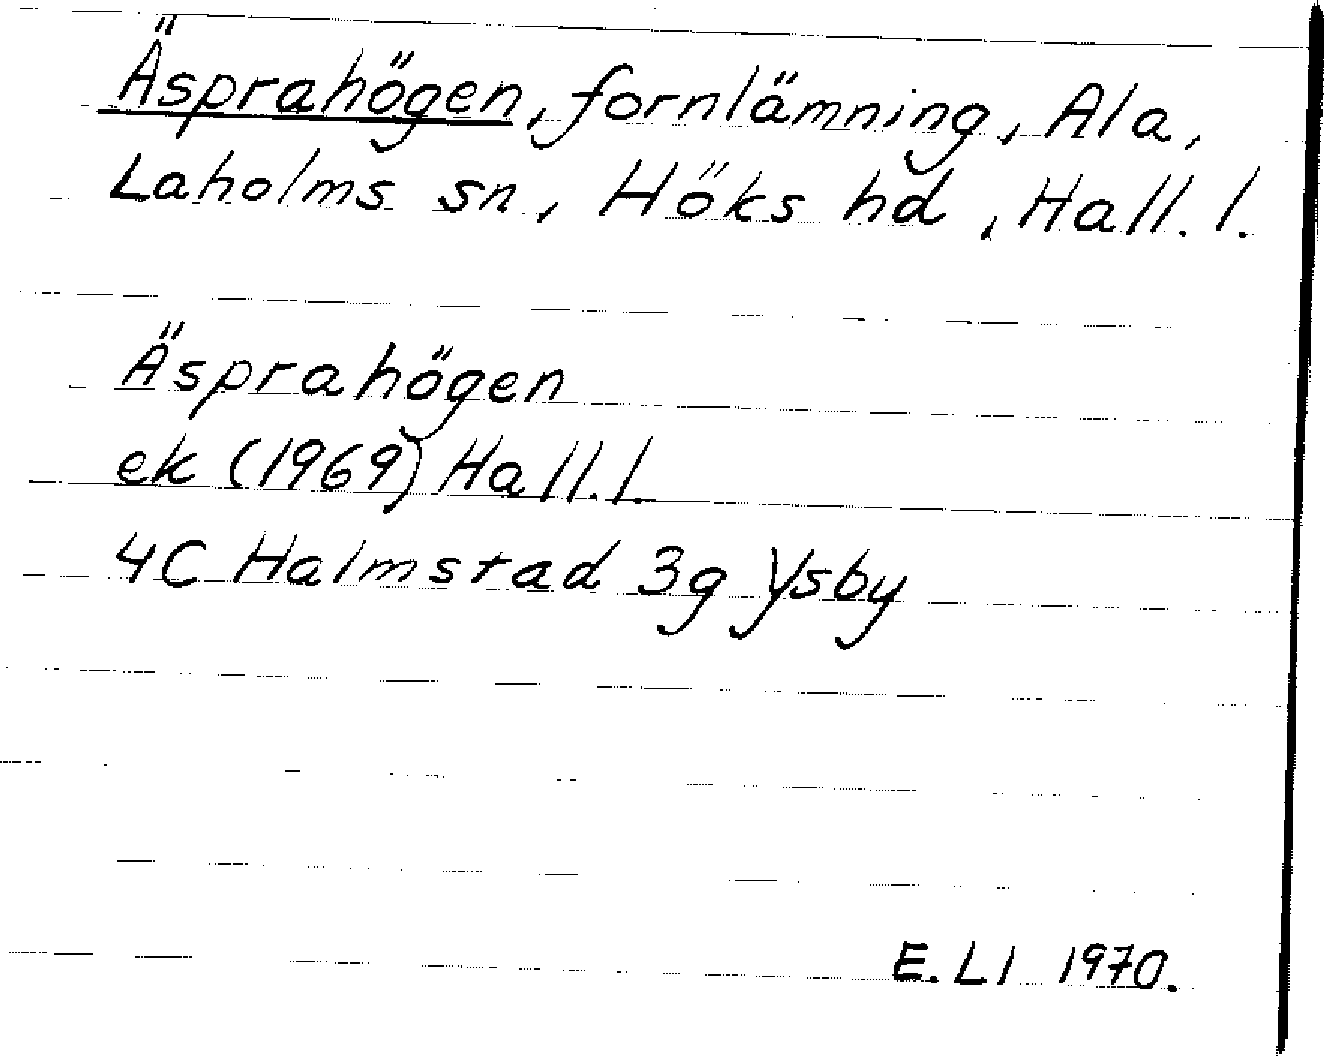 Äsprahögen, fornlämning, Ala,
Laholms sn, Höks hd, Hall. l.
Äsprahögen
ek (1969) Hall. l.
4C Halmstad 3g Ysby
E. Ll 1970.